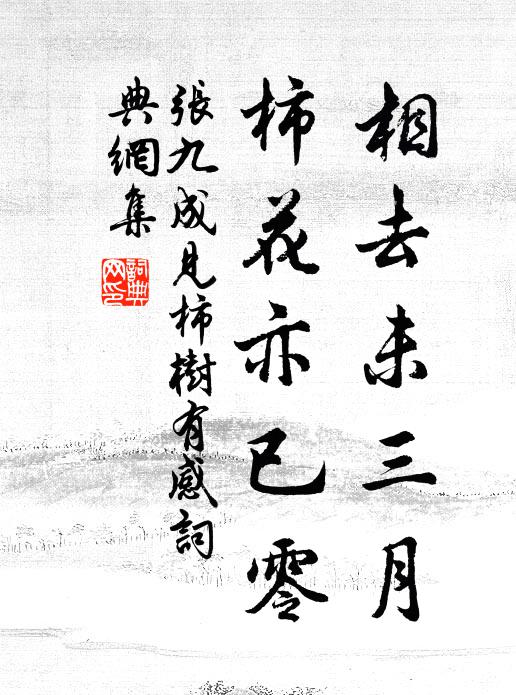 相去未三月
柿花亦已零
張九成見柿樹有感詞
典網集
詞典網印